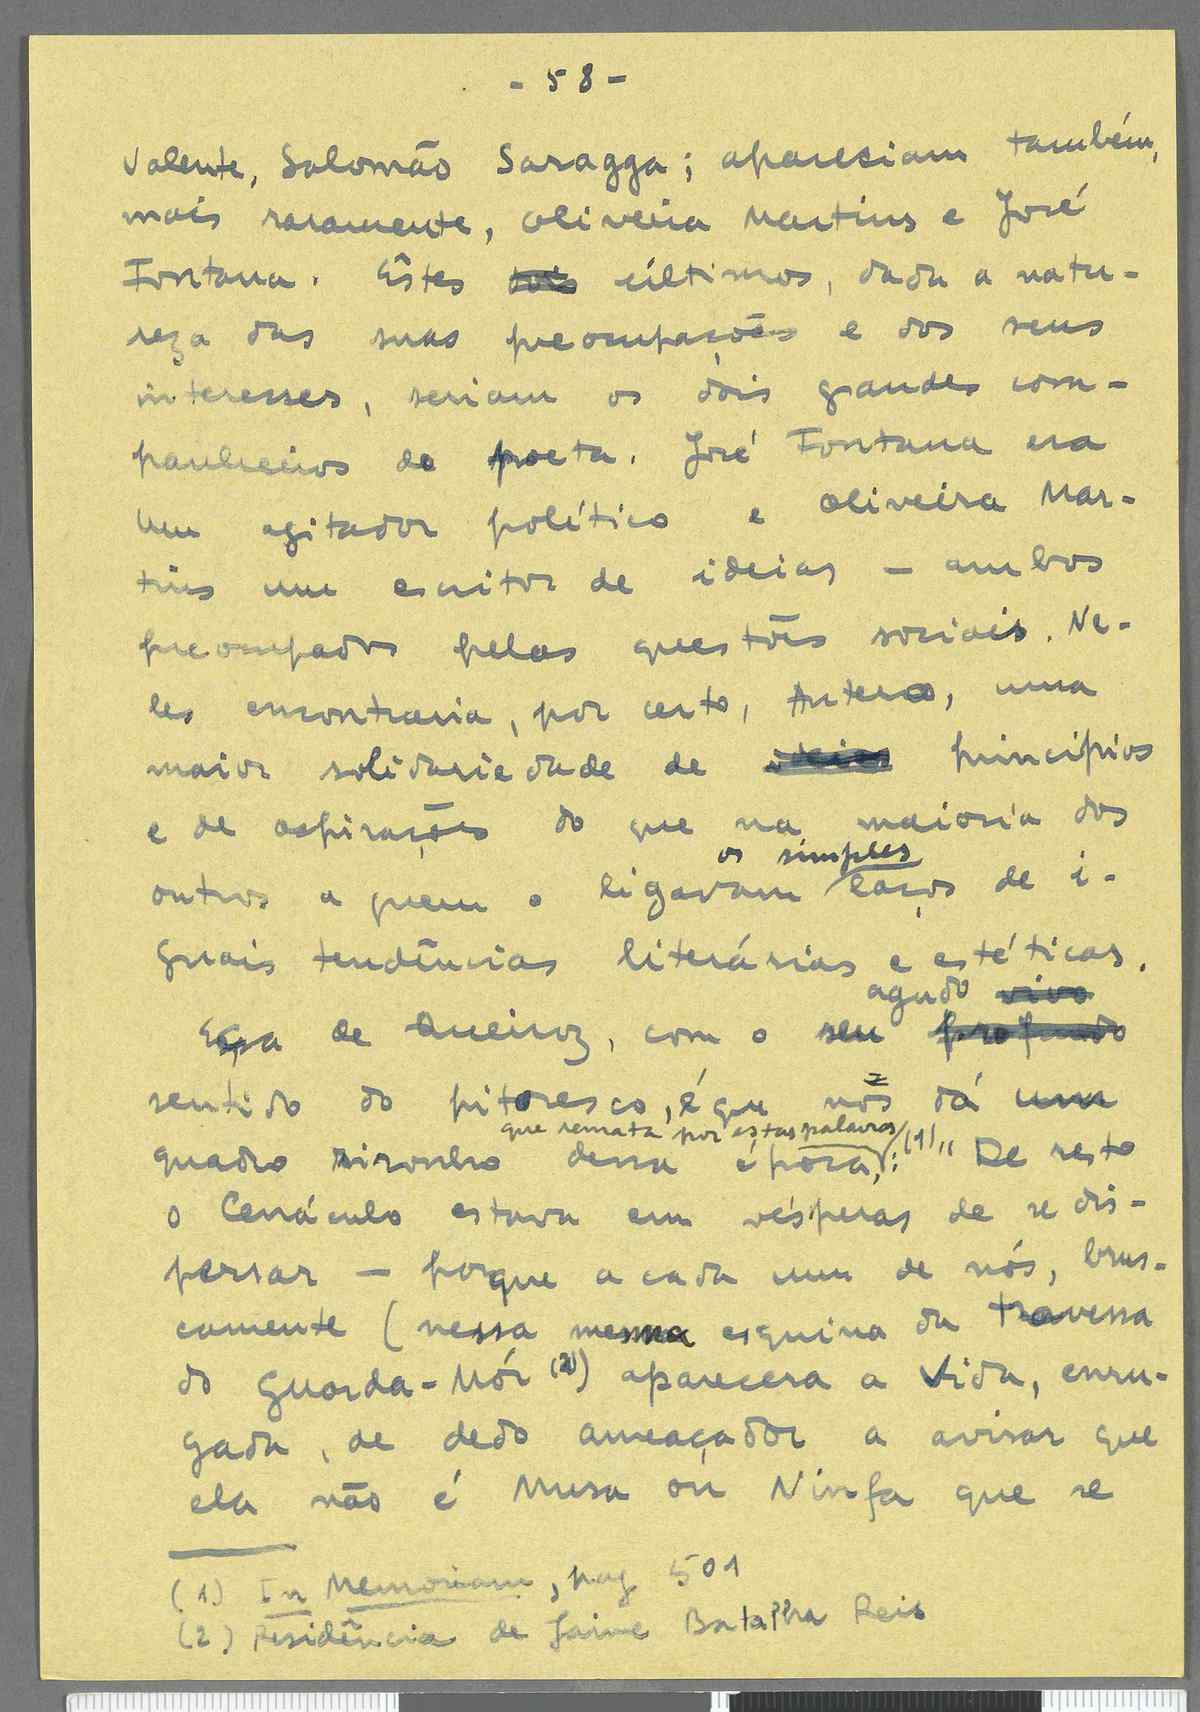 - 58 -
Valente, Salomão Saragga; apareciam também,
mais raramente, Oliveira Martins e José
Fontana. Êstes dois últimos, dada a natu-
reza das suas preocupações e dos seus
interesses, seriam os dois grandes com-
panheiros do poeta. José Fontana era
um agitador político e Oliveira Mar-
tins um escritor de ideias - ambos
preocupados pelas questões sociais. Ne-
les encontraria, por certo, Antero, uma
maior solidariedade de ideias princípios
e de aspirações do que na maioria dos
os simples
outros a quem o ligavam laços de i-
guais tendências literárias e estéticas.
agudo vivo
Eça de Queiroz, com o seu profundo
sentido do pitoresco, é que nos dá um
que remata por estas palavras
quadro risonho dessa época, : (1) " De resto
o Cenáculo estava em vésperas de se dis-
persar - porque a cada um de nós, brus-
camente (nessa mesma esquina da Travessa
do Guarda-Mór (2)) aparecera a Vida, enru-
gada, de dedo ameaçador a avisar que
ela não é Musa ou Ninfa que se
(1) In Memoriam, pag 501
(2) Residência de Jaime Batalha Reis